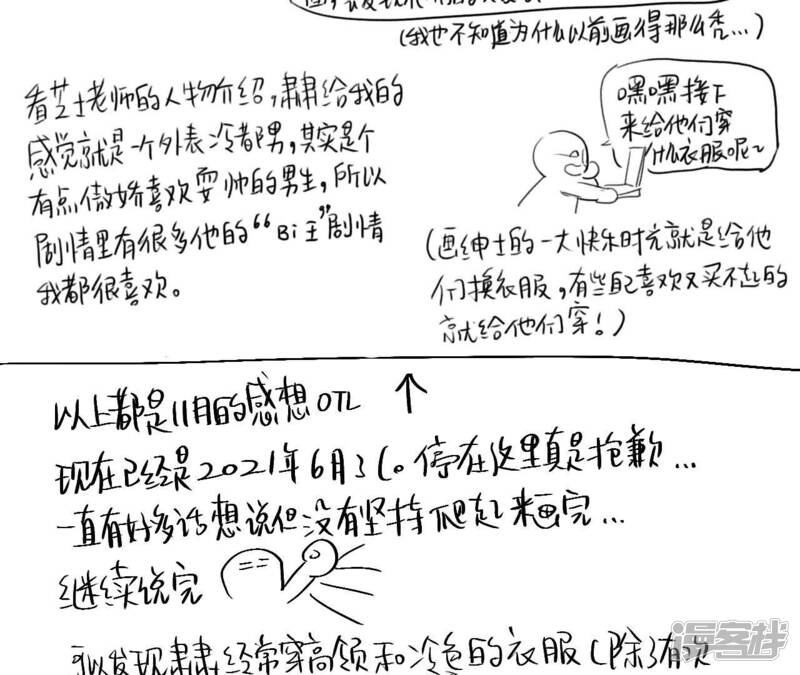 (我也不知道为什么以前画得那么秃...)
看芝士老师的人物介绍,肃给我的
感觉就是一个外表冷都男,其实是个
有点傲娇喜欢耍帅的男生,所以
剧情里有很多他的“Bi王”剧情
我都很喜欢。
嘿嘿接下
来给他们穿
什么衣服呢~
(画绅士的一大快乐时光就是给他
们换衣服,有些自己喜欢又买不起的
就给他们穿!)
以上都是11月的感想OTL ↑
现在已经是2021年6月3(。停在这里真是抱歉...
一直有好多话想说但没有坚持爬起来画完...
继续说完
可以发现肃经常穿高领和冷色的衣服(除了有次
漫客栈